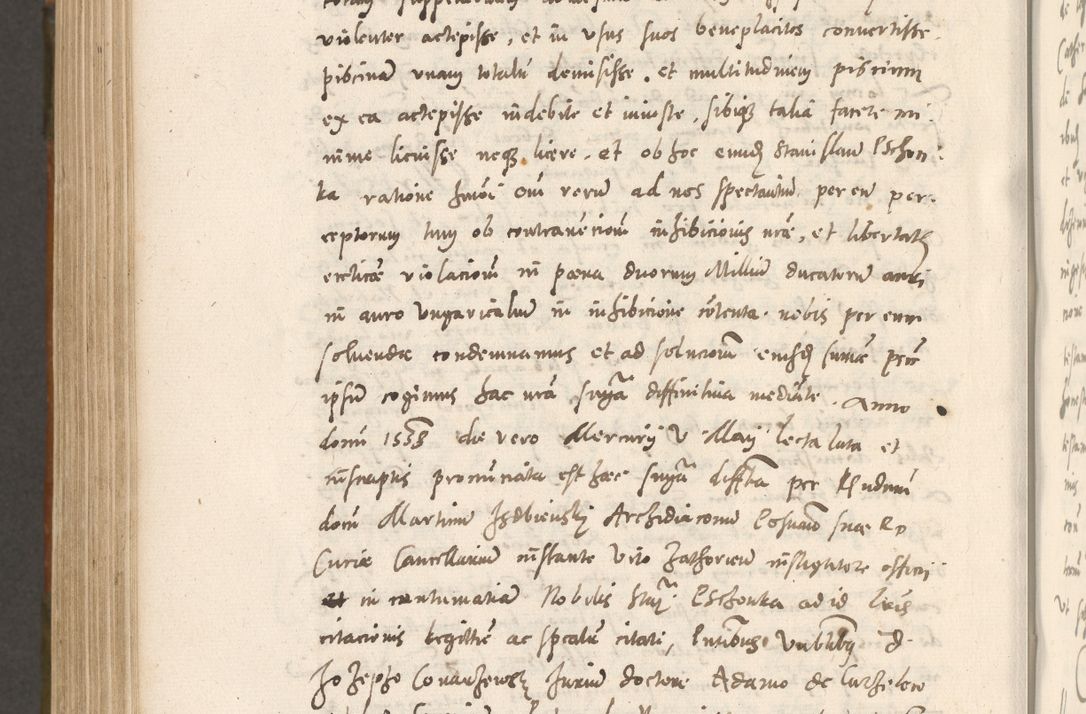 violenter accepisse, et in usus suos beneplacitos convertisse
piscinam unam totalem demisisse, et multitudinem piscium
ex ea accepisse indebite et iniuste, sibiq3 talia facere mi
nime licuisse neq3 licere, et ob hoc eund Stanislaum Pschon
ka ratione omnium rerum ad nos spectantium per eum per
ceptorum tum ob contravencionem inhibicionis nrae, et libertatis
ecclicae violacionem in poena duorum Millium ducatorum auri
in auro Ungaricalium in inhibicione contenta nobis per eum
solvenda condemnamus et ad solucionem eiusd summae
ipsum cogimus hac nra snia diffinitiva mediante. Anno
domi 1538 die vero Mercurij V Maij lecta lata et
in scriptis pronunciata est haec snia diffta per Rndum
dom Martinum Izdbienskj Archidiaconum Posnan suae Rp
Curiae Cancellarium instante Vito instigatore officij
et in contumatiam Nobilis Stan Pschonka ad id
citacionis legittime ac specialiter citati, Pntibus Vnblibq D
Jozepho Conarzewskj Jurium doctore Adamo de